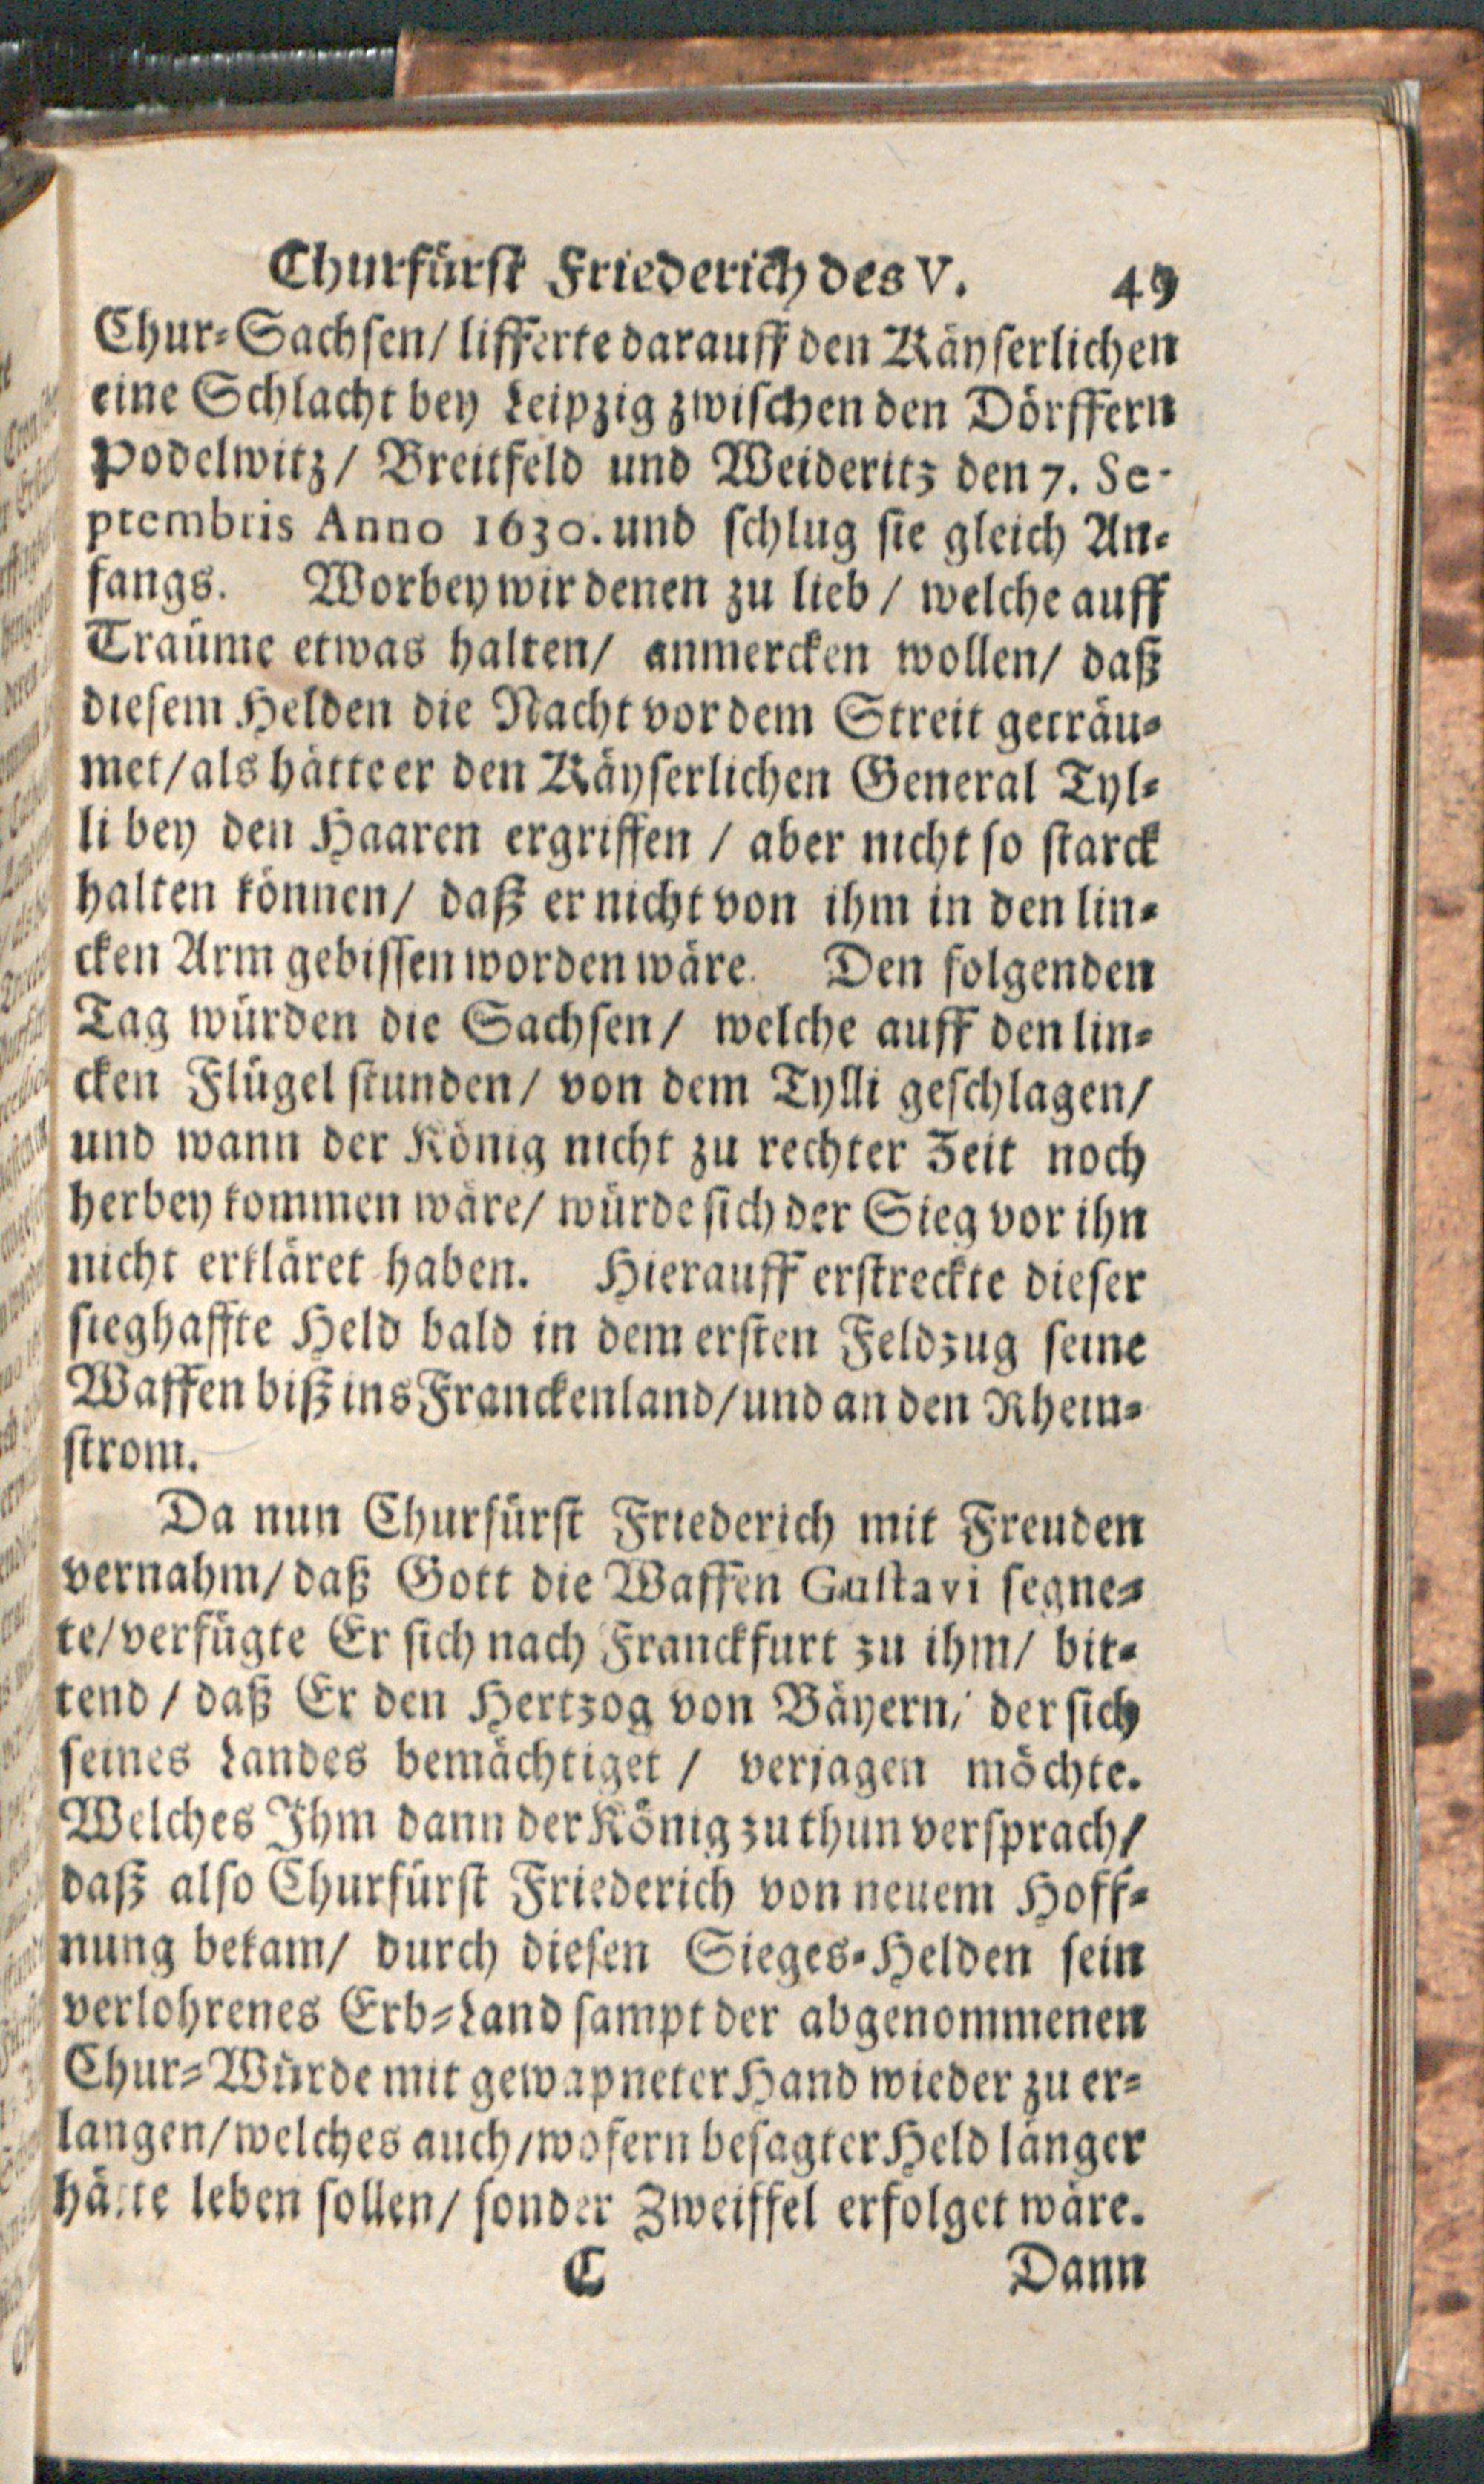 Churfürst Friederich des V. 49
Chur-Sachsen/ lifferte darauff den Käyserlichen
eine Schlacht bey Leipzig zwischen den Dörffern
Podelwitz/ Breitfeld und Weideritz den 7. Se-
ptembris Anno 1630. und schlug sie gleich An-
fangs. Worbey wir denen zu lieb / welche auff
Traüme etwas halten/ anmercken wollen/ daß
diesem Helden die Nacht vor dem Streit geträu-
met/als hätte er den Käyserlichen General Tyl-
li bey den Haaren ergriffen / aber nicht so starck
halten können/ daß er nicht von ihm in den lin-
cken Arm gebissen worden wäre. Den folgenden
Tag würden die Sachsen/ welche auff den lin-
cken Flügel stunden/ von dem Tylli geschlagen/
und wann der König nicht zu rechter Zeit noch
herbey kommen wäre/ würde sich der Sieg vor ihn
nicht erkläret haben. Hierauff erstreckte dieser
sieghaffte Held bald in dem ersten Feldzug seine
Waffen biß ins Franckenland/und an den Rhein-
strom.
Da nun Churfürst Friederich mit Freuden
vernahm/daß Gott die Waffen Gustavi segne-
te/verfügte Er sich nach Franckfurt zu ihm/ bit-
tend / daß Er den Hertzog von Bäyern/ der sich
seines Landes bemächtiget / verjagen möchte.
Welches Ihm dann der König zu thun versprach/
daß also Churfürst Friederich von neuem Hoff-
nung bekam/ durch diesen Sieges-Helden sein
verlohrenes Erb-Land sampt der abgenommenen
Chur-Würde mit gewapneter Hand wieder zu er-
langen/welches auch/wofern besagter Held länger
hätte leben sollen/ sonder Zweiffel erfolget wäre.
C Dann